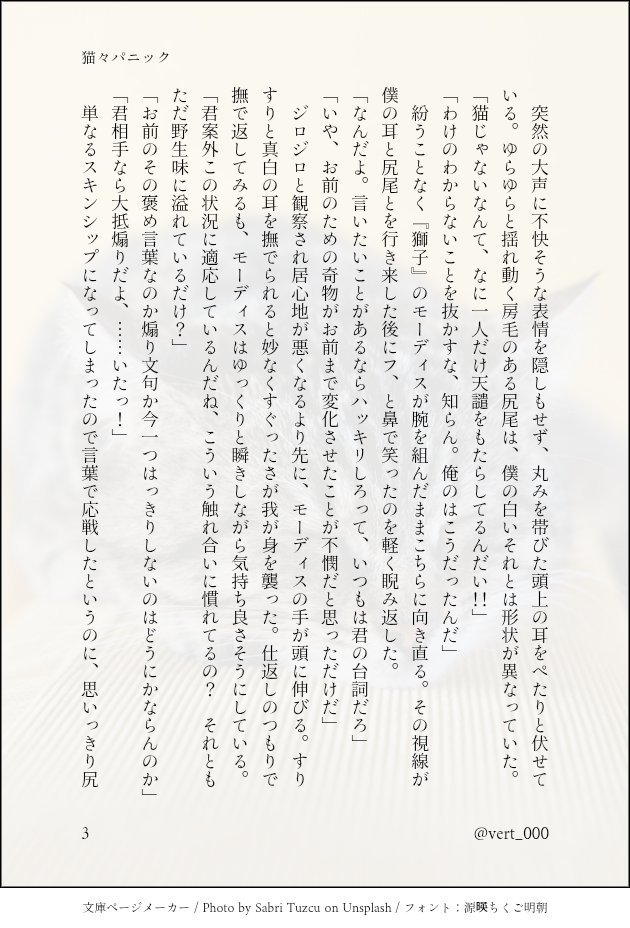 猫々パニック
　突然の大声に不快そうな表情を隠しもせず、丸みを帯びた頭上の耳をぺたりと伏せて
いる。ゆらゆらと揺れ動く房毛のある尻尾は、僕の白いそれとは形状が異なっていた。
「猫じゃないなんて、なに一人だけ天譴をもたらしてるんだい!!」
「わけのわからないことを抜かすな、知らん。俺のはこうだったんだ」
　紛うことなく『獅子』のモーディスが腕を組んだままこちらに向き直る。その視線が
僕の耳と尻尾とを行き来した後にフ、と鼻で笑ったのを軽く睨み返した。
「なんだよ。言いたいことがあるならハッキリしろって、いつもは君の台詞だろ」
「いや、お前のための奇物がお前まで変化させたことが不憫だと思っただけだ」
　ジロジロと観察され居心地が悪くなるより先に、モーディスの手が頭に伸びる。すり
すりと真白の耳を撫でられると妙なくすぐったさが我が身を襲った。仕返しのつもりで
撫で返してみるも、モーディスはゆっくりと瞬きしながら気持ち良さそうにしている。
「君案外この状況に適応しているんだね、こういう触れ合いに慣れてるの？　それとも
ただ野生味に溢れているだけ？」
「お前のその褒め言葉なのか煽り文句か今一つはっきりしないのはどうにかならんのか」
「君相手なら大抵煽りだよ、……いたっ！」
　単なるスキンシップになってしまったので言葉で応戦したというのに、思いっきり尻
3
@vert_000
文庫ページメーカー / Photo by Sabri Tuzcu on Unsplash / フォント：源暎ちくご明朝